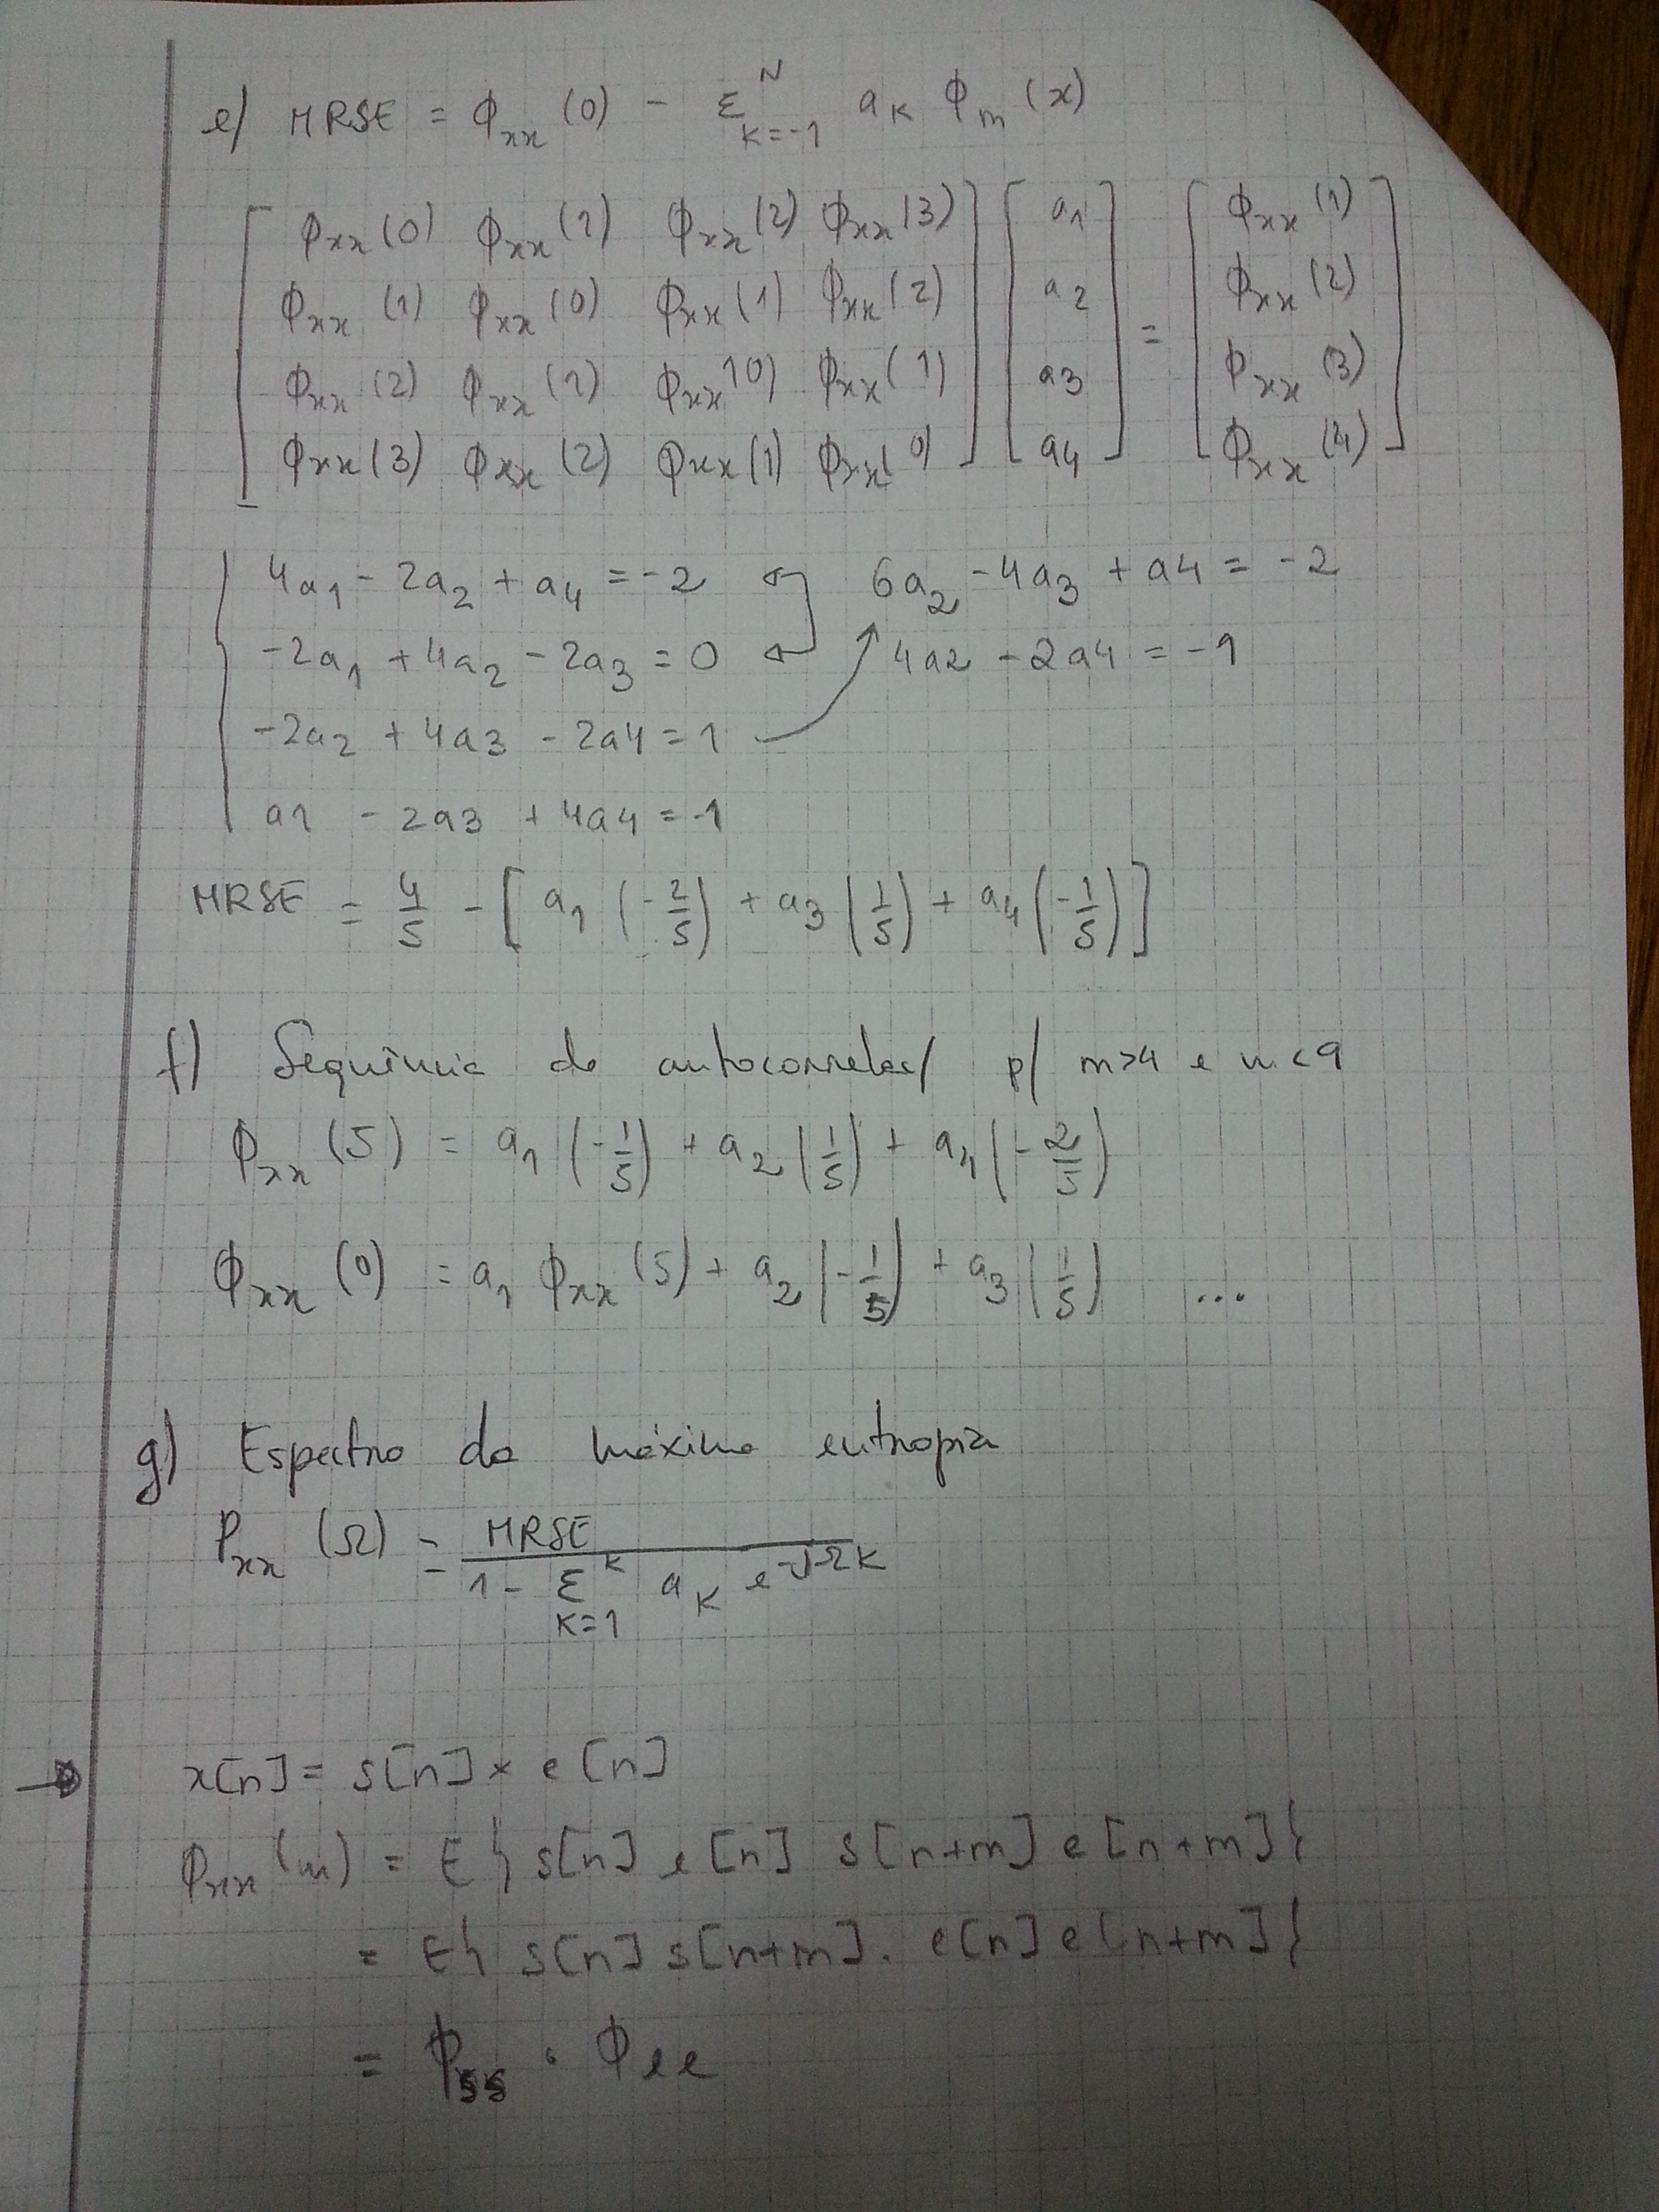 e) MRSE = ϕxx (0) - Σ_{k=-1}^{N} aK ϕm (x)
[ ϕxx (0) ϕxx (1) ϕxx (2) ϕxx (3) ] [ a1 ] = [ ϕxx (1) ]
[ ϕxx (1) ϕxx (0) ϕxx (1) ϕxx (2) ] [ a2 ] [ ϕxx (2) ]
[ ϕxx (2) ϕxx (1) ϕxx (0) ϕxx (1) ] [ a3 ] [ ϕxx (3) ]
[ ϕxx (3) ϕxx (2) ϕxx (1) ϕxx (0) ] [ a4 ] [ ϕxx (4) ]
4a1 - 2a2 + a4 = -2 6a2 - 4a3 + a4 = -2
-2a1 + 4a2 - 2a3 = 0 4a2 - 2a4 = -1
-2a2 + 4a3 - 2a4 = 1
a1 - 2a3 + 4a4 = -1
MRSE = 4/5 - [ a1 (-2/5) + a3 (1/5) + a4 (-1/5) ]
f) Sequência de autocorrelaç/ p/ m>4 e m<9
ϕxx (5) = a1 (-1/5) + a2 (1/5) + a4 (-2/5)
ϕxx (0) = a1 ϕxx (5) + a2 (-1/5) + a3 (1/5) ...
g) Espectro de máxima entropia
Pxx (Ω) = MRSE / 1 - Σ_{K=1}^{K} aK e^{-jΩK}
→ x[n] = s[n] × e[n]
ϕxx (m) = E{ s[n] e[n] s[n+m] e[n+m] }
= E{ s[n] s[n+m] . e[n] e[n+m] }
= ϕss . ϕee